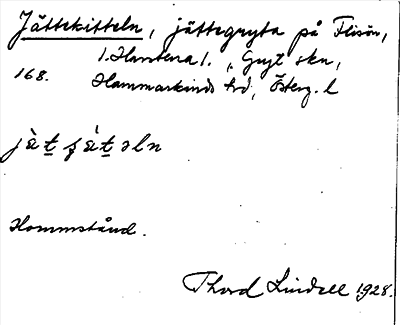 Jättekitteln, jättegryta på Flisön,
1. Harstena 1., Gryt skn,
168. Hammarkinds hd, Österg. l
jä̀t̲ ʂä́t̲əln
Hommstånd.
Thord Lindell 1928.